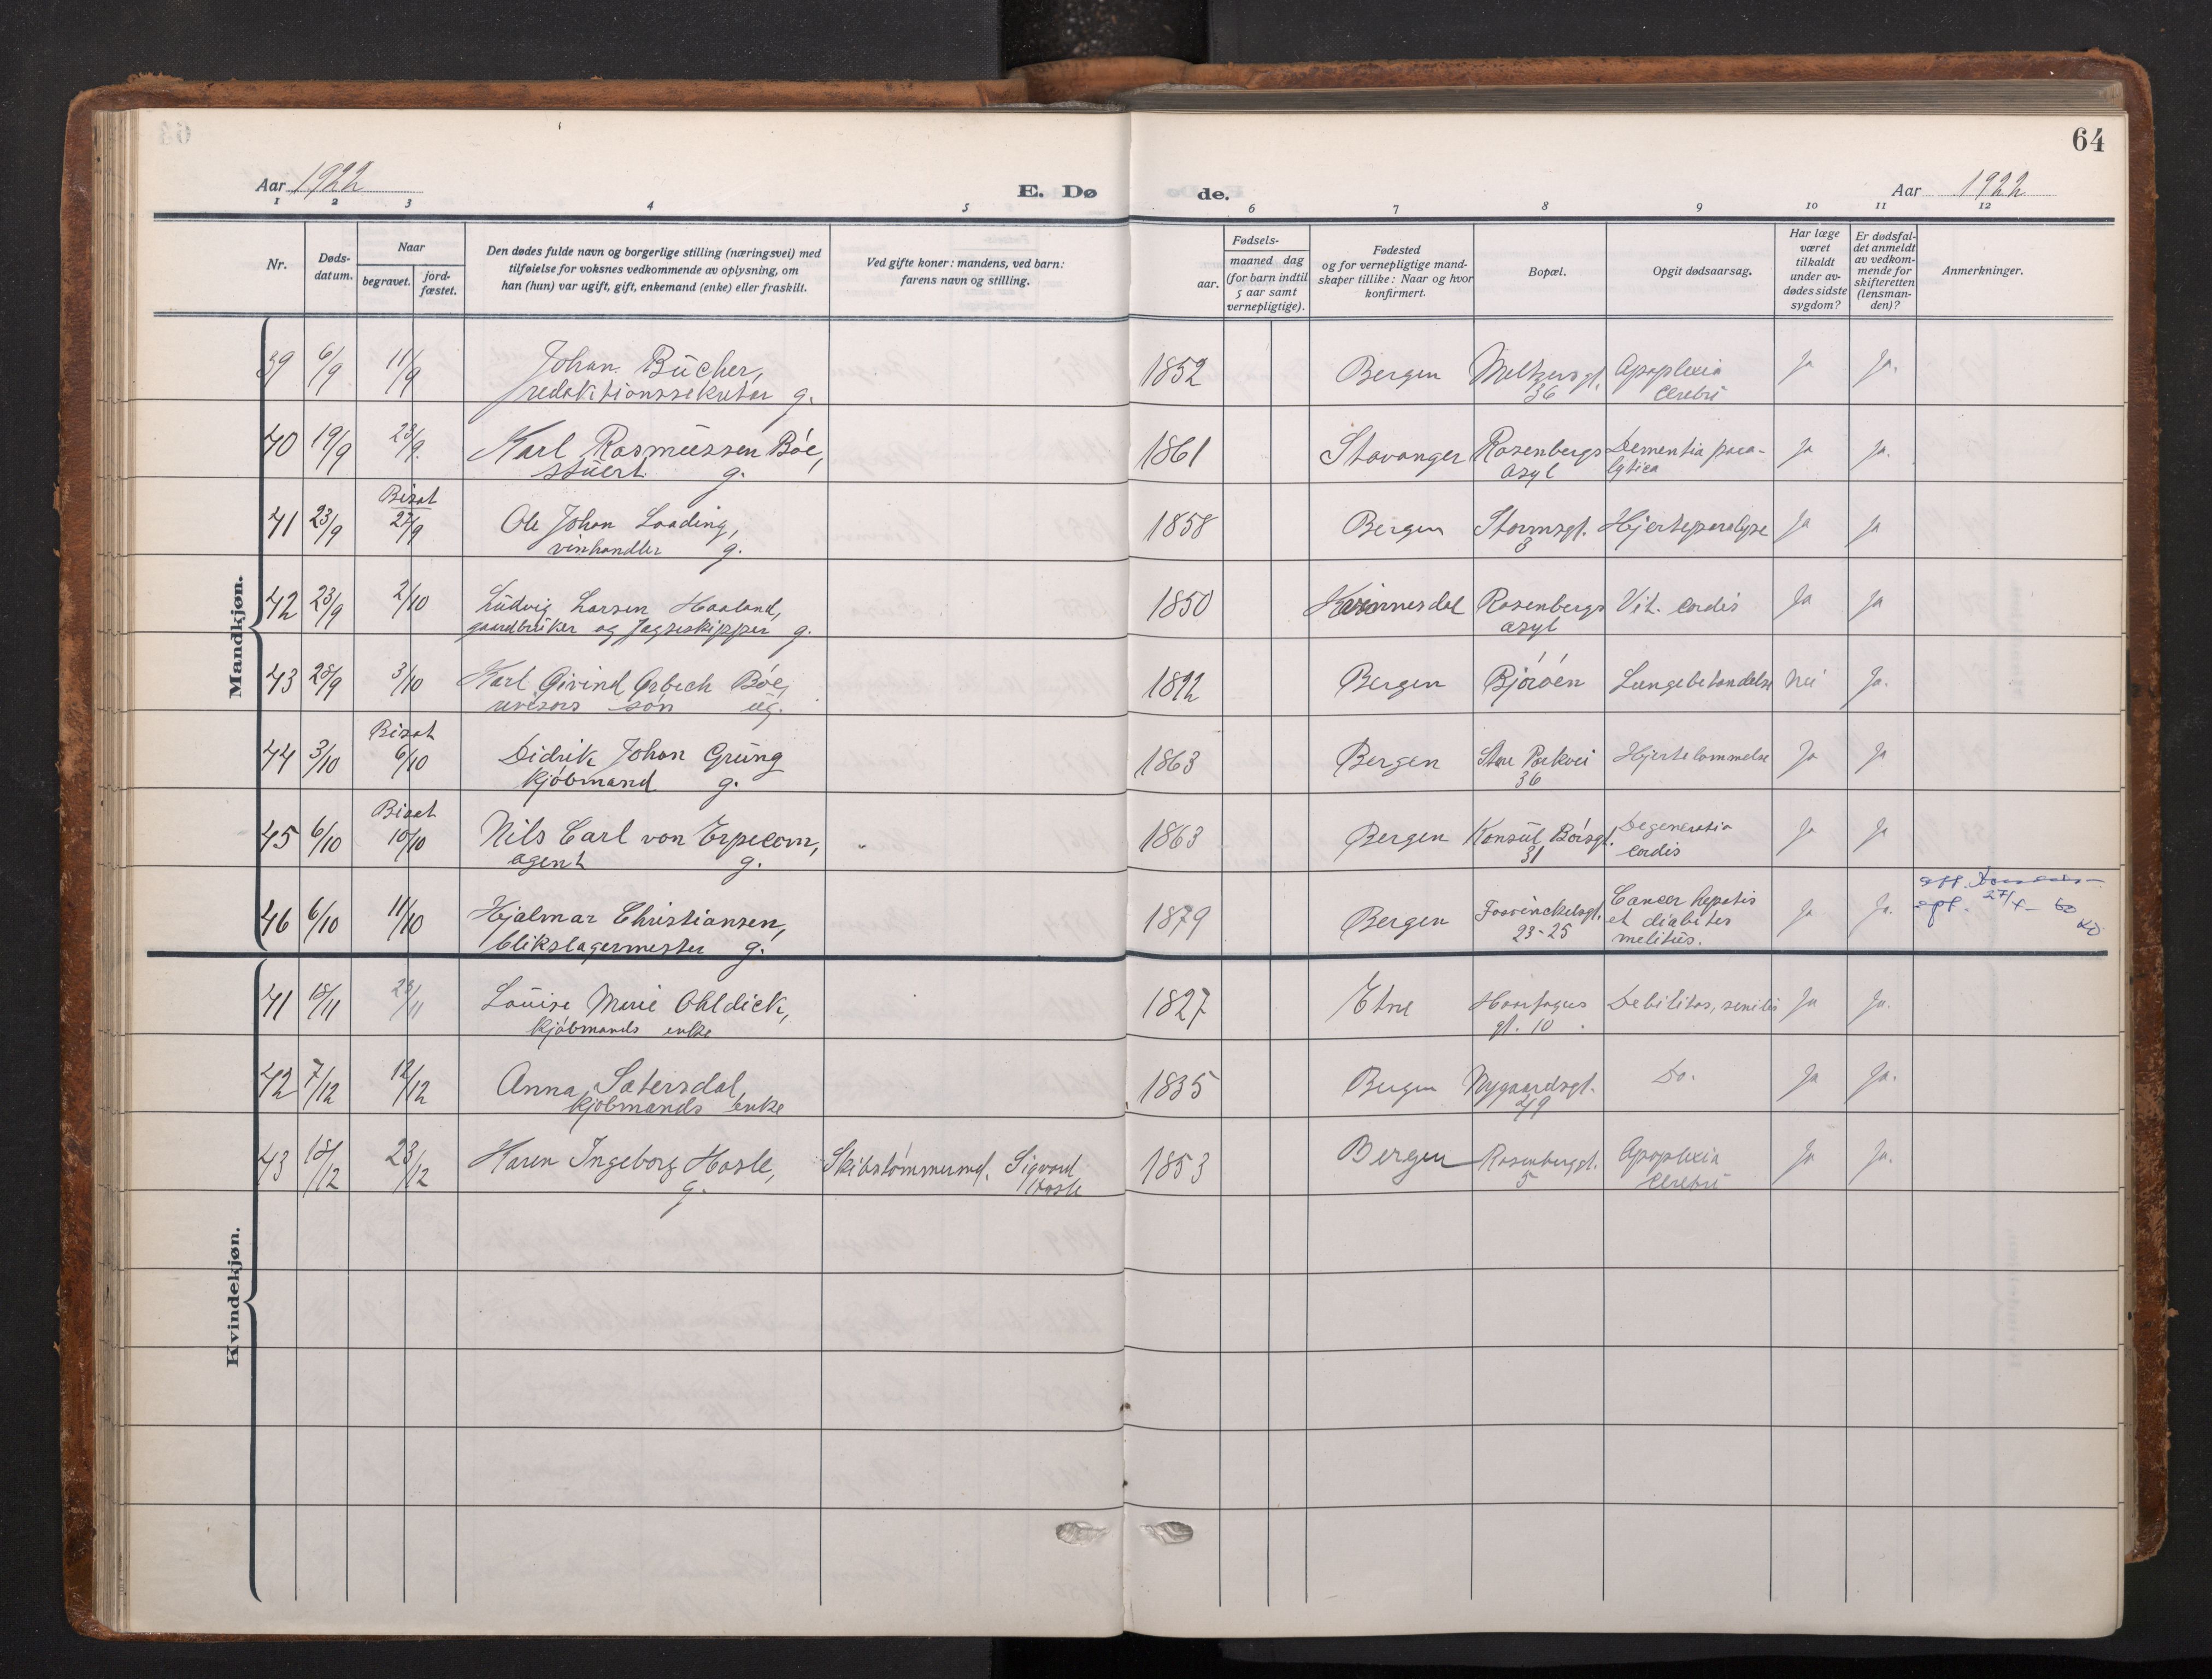 64
Aar 1922
E. Dø
de.
Aar 1922
1 2 3 4 5 6 7 8 9 10 11 12
Nr.
Døds-
datum.
Naar
begravet.
jord-
fæstet.
Den dødes fulde navn og borgerlige stilling (næringsvei) med
tilføielse for voksnes vedkommende av oplysning, om
han (hun) var ugift, gift, enkemand (enke) eller fraskilt.
Ved gifte koner: mandens, ved barn:
farens navn og stilling.
Fødsels-
aar.
maaned dag
(for barn indtil
5 aar samt
vernepligtige).
Fødested
og for vernepligtige mand-
skaper tillike: Naar og hvor
konfirmert.
Bopæl.
Opgit dødsaarsag.
Har læge
været
tilkaldt
under av-
dødes sidste
sygdom?
Er dødsfal-
det anmeldt
av vedkom-
mende for
skifteretten
(lensman-
den)?
Anmerkninger.
Mandkjøn.
39 6/9 11/9 Johan Bücher, 1852 Bergen Meltzersgt. Apoplexia Ja Ja.
redaktionssekretær g. 36 Cerebri
40 19/9 23/9. Karl Rasmussen Bóe, 1861 Stavanger Rosenbergs Dementia para- Ja Ja.
stuert g. asyl lytica
Bisat
41 23/9 27/9 Ole Johan Laading, 1858 Bergen Stormsgt. Hjerteparalyse Ja Ja
vinhandler g. 8
42 23/9 2/10 Ludvig Larsen Haaland, 1850 Kvinnesdal Rosenbergs Vit. Cordis Ja Ja
gaardbruker og Jagteskipper g. asyl
43 28/9 3/10 Karl Øivind Ørbech Bóe, 1892 Bergen Bjóróen Lungebetændelse Nei Ja.
revisors són ug.
Bisat
44 3/10 6/10 Didrik Johan Grung 1863 Bergen Store Parkvei Hjertelammelse Ja Ja
kjóbmand g. 36
Bisat
45 6/10 10/10 Nils Carl von Erpecom, 1863 Bergen Konsul Bórsgt. Degeneratio Ja Ja
agent g. 31 Cordis
46 6/10 11/10 Hjalmar Christiansen, 1879 Bergen Fosvinckelsgt. Cancer hepatis Ja Ja.
blikslagermester g. 23-25 et diabites
melitus.
27/4-60
Kvindekjøn.
41 18/11 23/11 Louise Marie Ohldieck, 1827 Etne Haarfagres Debilitas, senilis Ja Ja.
kjóbmands enke gt. 10
42 7/12 12/12 Anna Sætersdal, 1835 Bergen Nygaardsgt. Do. Ja Ja.
kjóbmands enke 49
43 18/12 23/12 Karen Ingeborg Hasle, Skibstómmermd. Sigvard 1853 Bergen Rosenbergt. Apoplexia Ja Ja.
g. Hasle 5 Cerebri